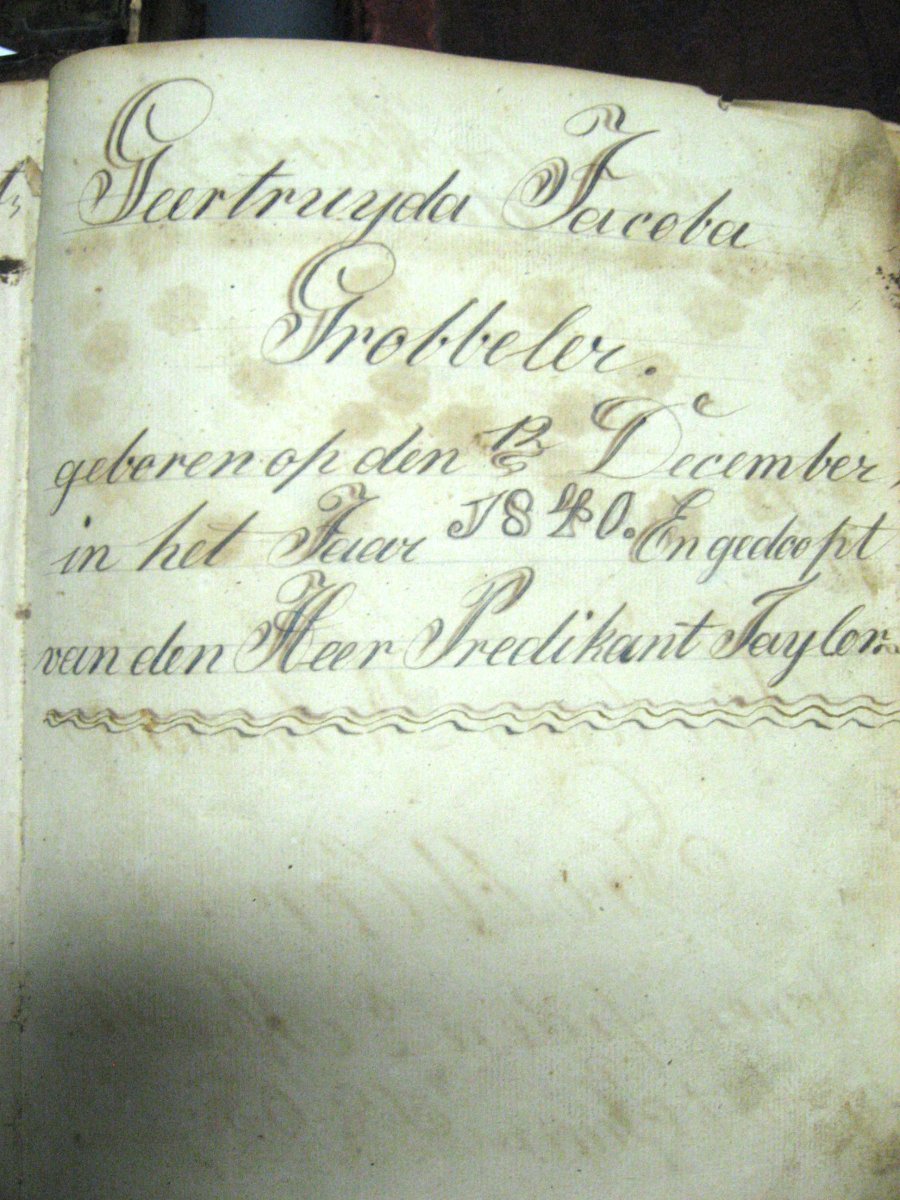 Geertruyda Jacoba
Grobbeler.
geboren op den 12 December,
in het Jaar 1840. En gedoopt
van den Heer Predikant Taylor